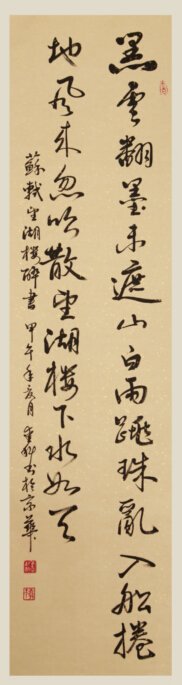 黑雲翻墨未遮山白雨跳珠亂入船捲
地風來忽吹散望湖樓下水如天
蘇軾望湖樓醉書 甲午年亥月 書於京華